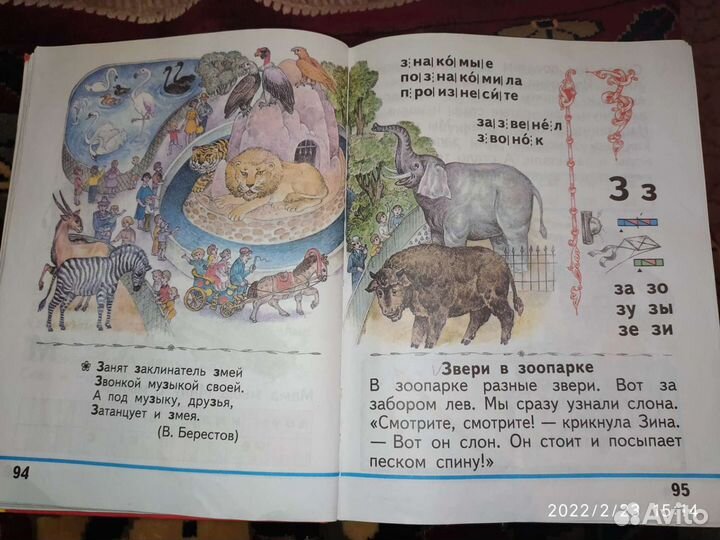 Занят заклинатель змей
Звонкой музыкой своей.
А под музыку, друзья,
Затанцует и змея.
(В. Берестов)
94
з|на|ко́|мы|е
по|з|на|ко́|ми|ла
п|ро|из|не|си́|те
за|з|ве|не́|л
з|во|но́|к
З з
за зо
зу зы
зе зи
Звери в зоопарке
В зоопарке разные звери. Вот за
забором лев. Мы сразу узнали слона.
«Смотрите, смотрите! — крикнула Зина.
— Вот он слон. Он стоит и посыпает
песком спину!»
95
2022/2/23 15:14
Avito